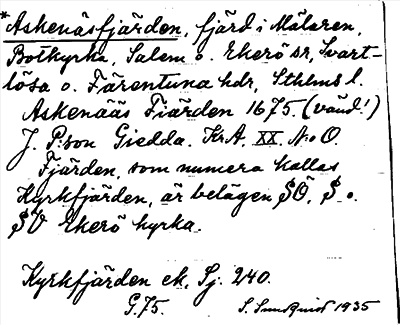 *Askenäsfjärden, fjärd i Mälaren,
Botkyrka, Salem o. Ekerö sr, Svart-
lösa o. Färentuna hdr, Sthlms l.
Askenääs Fiärden 1675 (vänd!)
J. P:son Giedda. KrA. XX. N:o O.
Fjärden, som numera kallas
Kyrkfjärden, är belägen SÖ, S o.
SV Ekerö kyrka.
Kyrkfjärden ek, Sj. 240.
G.75.
S. Sundquist 1935